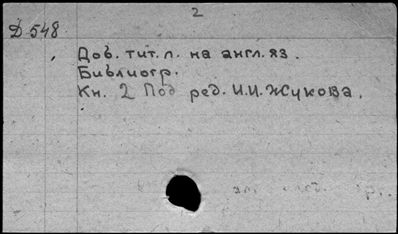 2
Д 548
Доб. тит. л. на англ. яз.
Библиогр.
Кн. 2 Под ред. И.И. Жукова.